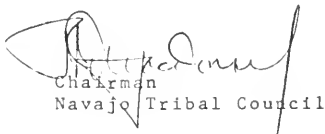 Chairman
Navajo Tribal Council